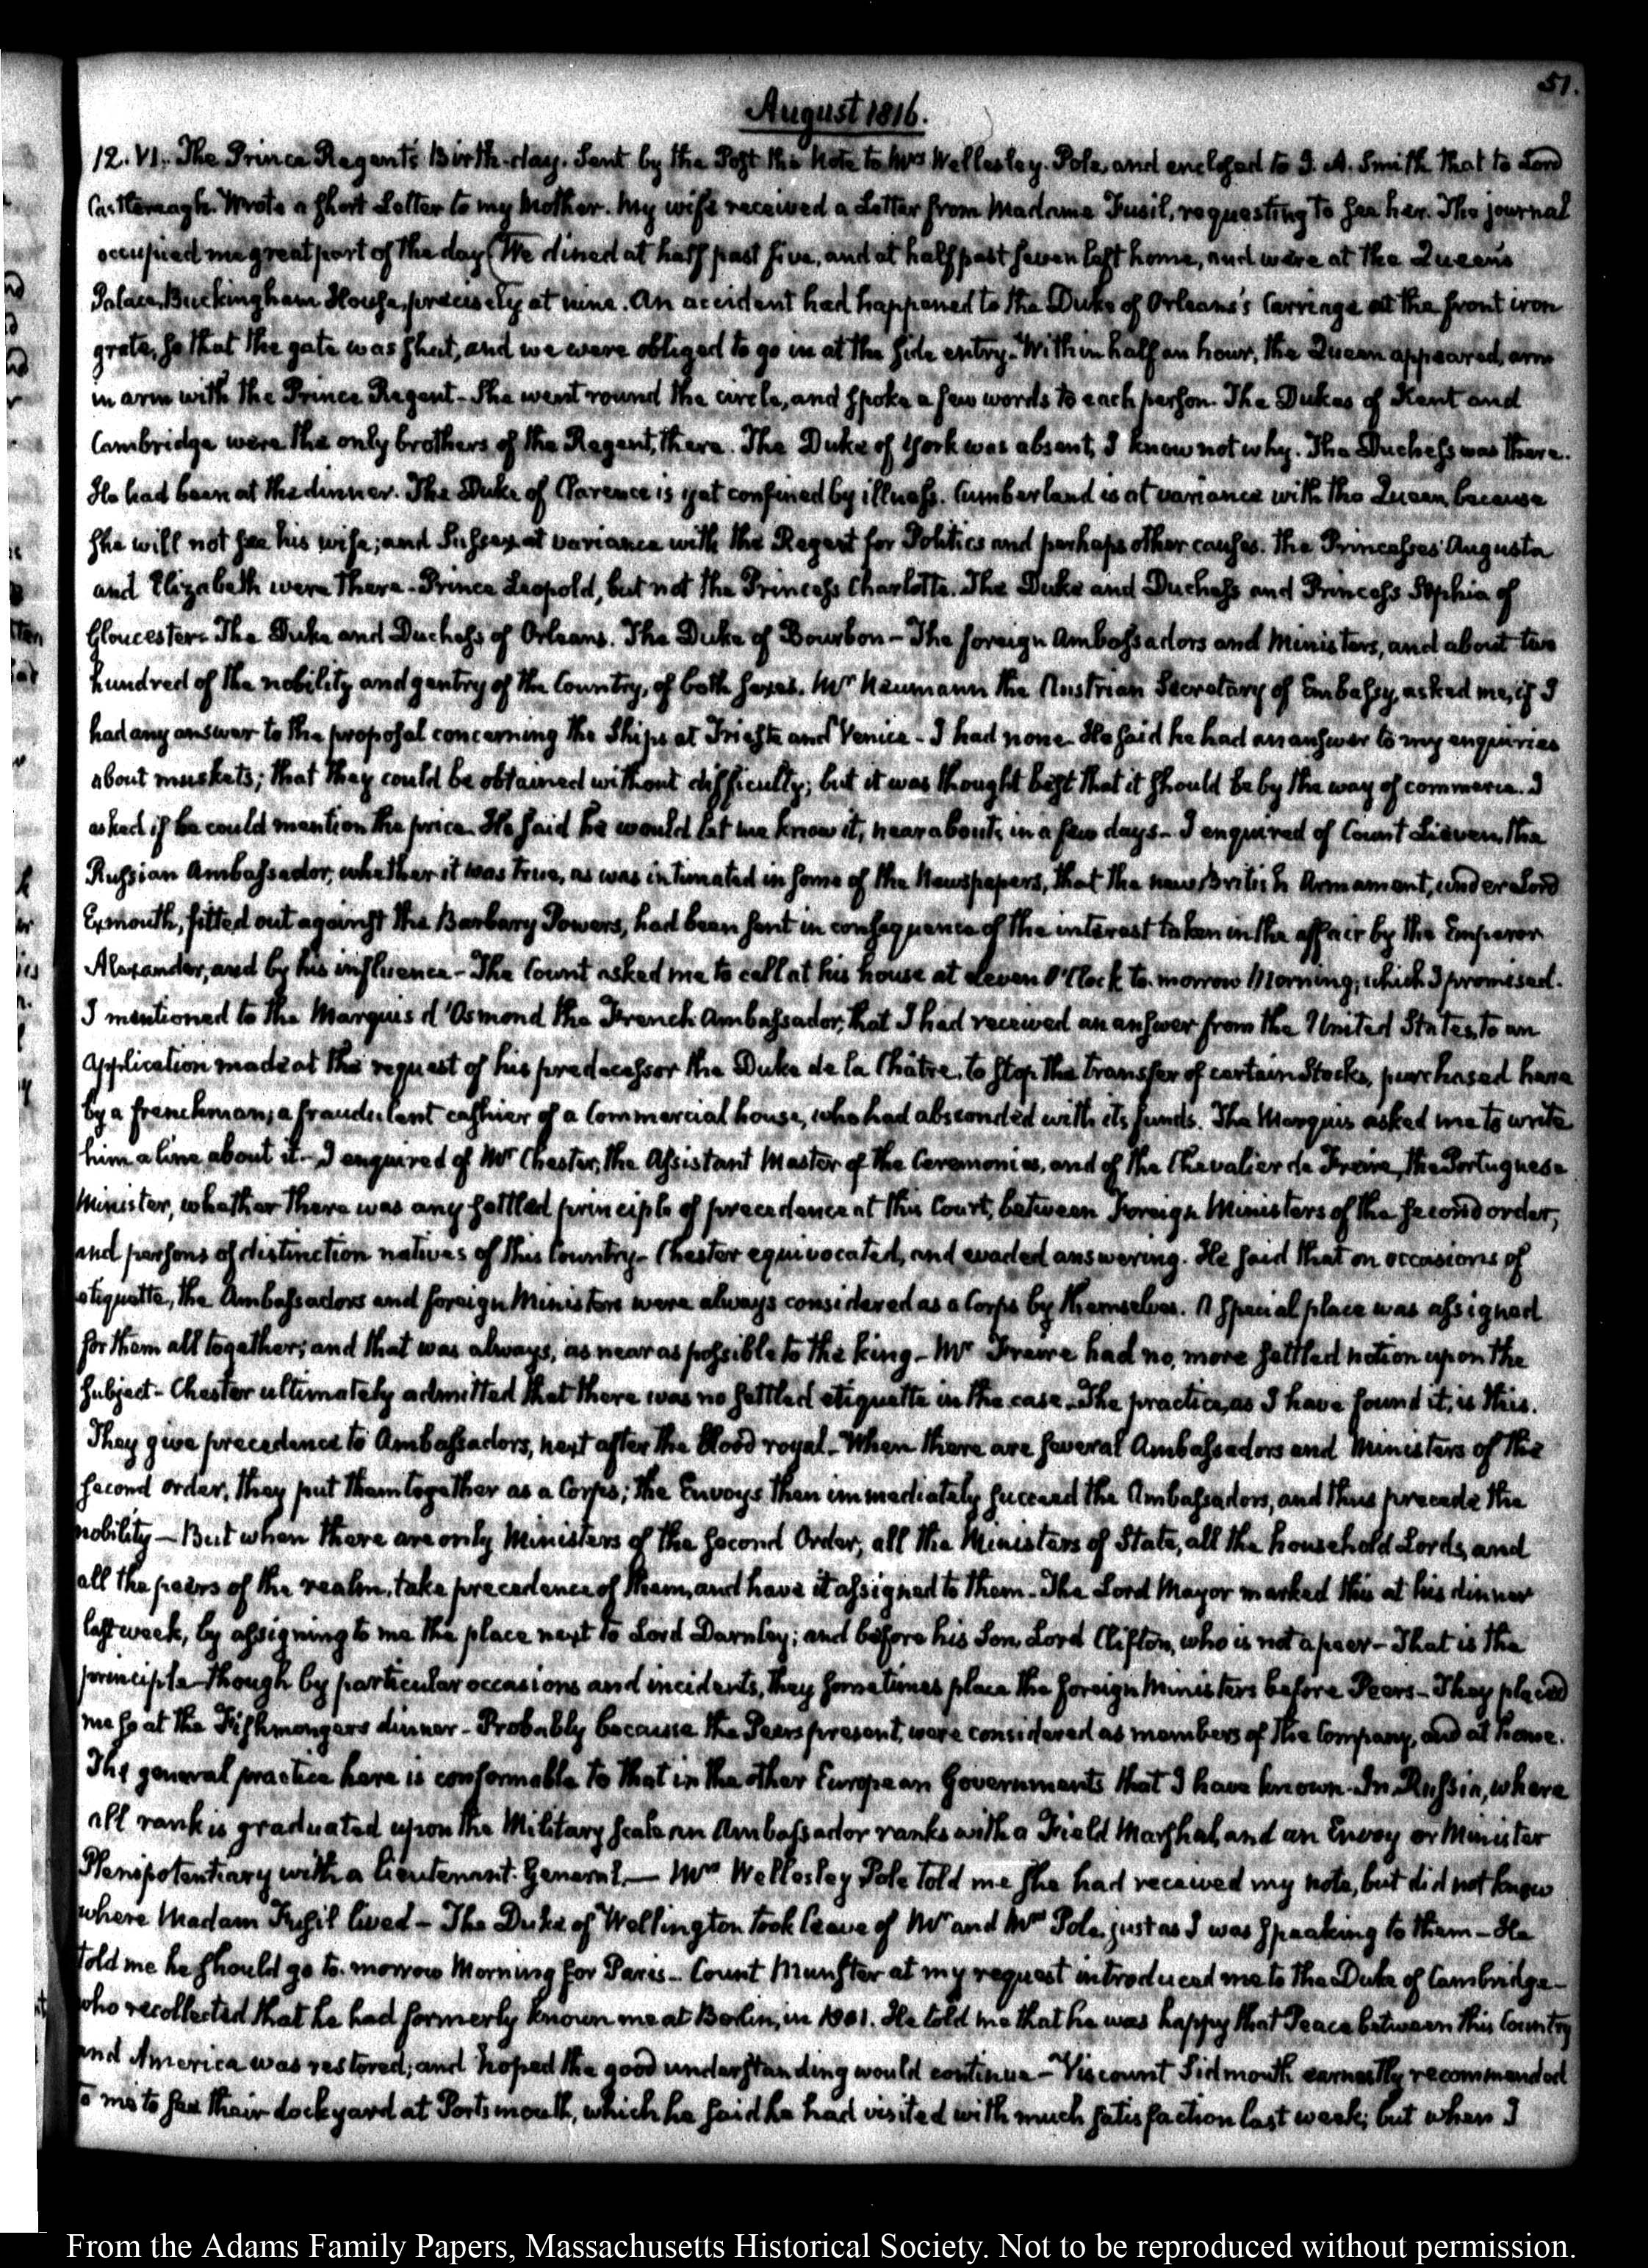 51.
August 1816.
12. VI. The Prince Regent's Birth-day. Sent by the Post the Note to Mrs Wellesley-Pole, and enclosed to J. A. Smith that to Lord
Castlereagh. Wrote a short Letter to my Mother. My wife received a Letter from Madame Fusil, requesting to see her. The journal
occupied me great part of the day (We dined at half past five, and at half past seven left home, and were at the Queen's
Palace, Buckingham House, precisely at nine. An accident had happened to the Duke of Orleans's Carriage at the front iron
grate, so that the gate was shut, and we were obliged to go in at the side entry. Within half an hour, the Queen appeared, arm
in arm with the Prince Regent - She went round the circle, and spoke a few words to each person. The Dukes of Kent and
Cambridge were the only brothers of the Regent, there. The Duke of York was absent, I know not why. The Duchess was there.
He had been at the dinner. The Duke of Clarence is yet confined by illness. Cumberland is at variance with the Queen, because
she will not see his wife; and Sussex at variance with the Regent for Politics and perhaps other causes. The Princesses Augusta
and Elizabeth were there - Prince Leopold, but not the Princess Charlotte. The Duke and Duchess and Princess Sophia of
Gloucester. The Duke and Duchess of Orleans. The Duke of Bourbon - The foreign Ambassadors and Ministers, and about two
hundred of the nobility and gentry of the Country, of both sexes. Mr Neumann the Austrian Secretary of Embassy, asked me, if I
had any answer to the proposal concerning the Ships at Trieste and Venice - I had none. He said he had an answer to my enquiries
about muskets; that they could be obtained without difficulty; but it was thought best that it should be by the way of commerce. I
asked if he could mention the price. He said he would let me know it, nearabouts, in a few days - I enquired of Count Lieven, the
Russian Ambassador, whether it was true, as was intimated in some of the Newspapers, that the new British Armament, under Lord
Exmouth, fitted out against the Barbary Powers, had been sent in consequence of the interest taken in the affair by the Emperor
Alexander, and by his influence - The Count asked me to call at his house at eleven O'Clock to-morrow Morning; which I promised.
I mentioned to the Marquis d'Osmond the French Ambassador, that I had received an answer from the United States, to an
application made at the request of his predecessor the Duke de la Châtre, to stop the transfer of certain Stocks, purchased here
by a frenchman; a fraudulent cashier of a Commercial house, who had absconded with its funds. The Marquis asked me to write
him a line about it - I enquired of Mr Chester, the Assistant Master of the Ceremonies, and of the Chevalier de Freire, the Portuguese
Minister, whether there was any settled principle of precedence at this Court, between Foreign Ministers of the second order,
and persons of distinction natives of this Country - Chester equivocated, and evaded answering. He said that on occasions of
etiquette, the Ambassadors and foreign Ministers were always considered as a Corps by themselves. A special place was assigned
for them all together; and that was always, as near as possible to the king - Mr Freire had no more settled notion upon the
subject - Chester ultimately admitted that there was no settled etiquette in the case. The practice, as I have found it, is this.
They give precedence to Ambassadors, next after the blood royal - When there are several Ambassadors and Ministers of the
second order, they put them together as a Corps; the Envoys then immediately succeed the Ambassadors, and thus precede the
nobility - But when there are only Ministers of the second Order, all the Ministers of State, all the household Lords, and
all the peers of the realm, take precedence of them, and have it assigned to them - The Lord Mayor marked this at his dinner
last week, by assigning to me the place next to Lord Darnley; and before his Son, Lord Clifton, who is not a peer - That is the
principle - though by particular occasions and incidents, they sometimes place the foreign Ministers before Peers - They placed
me so at the Fishmongers dinner - Probably because the Peers present, were considered as members of the Company, and at home.
The general practice here is conformable to that in the other European Governments that I have known. In Russia, where
all rank is graduated upon the Military scale an Ambassador ranks with a Field Marshal, and an Envoy or Minister
Plenipotentiary with a lieutenant-General. — Mrs Wellesley Pole told me she had received my note, but did not know
where Madam Fusil lived - The Duke of Wellington took leave of Mr and Mrs Pole, just as I was speaking to them - He
told me he should go to-morrow Morning for Paris - Count Munster at my request introduced me to the Duke of Cambridge -
who recollected that he had formerly known me at Berlin, in 1801. He told me that he was happy that Peace between this Country
and America was restored; and hoped the good understanding would continue - Viscount Sidmouth earnestly recommended
to me to see their dockyard at Portsmouth, which he said he had visited with much satisfaction last week; but when I
From the Adams Family Papers, Massachusetts Historical Society. Not to be reproduced without permission.